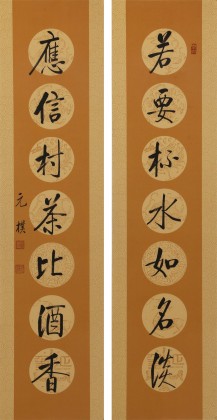 若要杯水如名淡
應信村茶比酒香
元樸